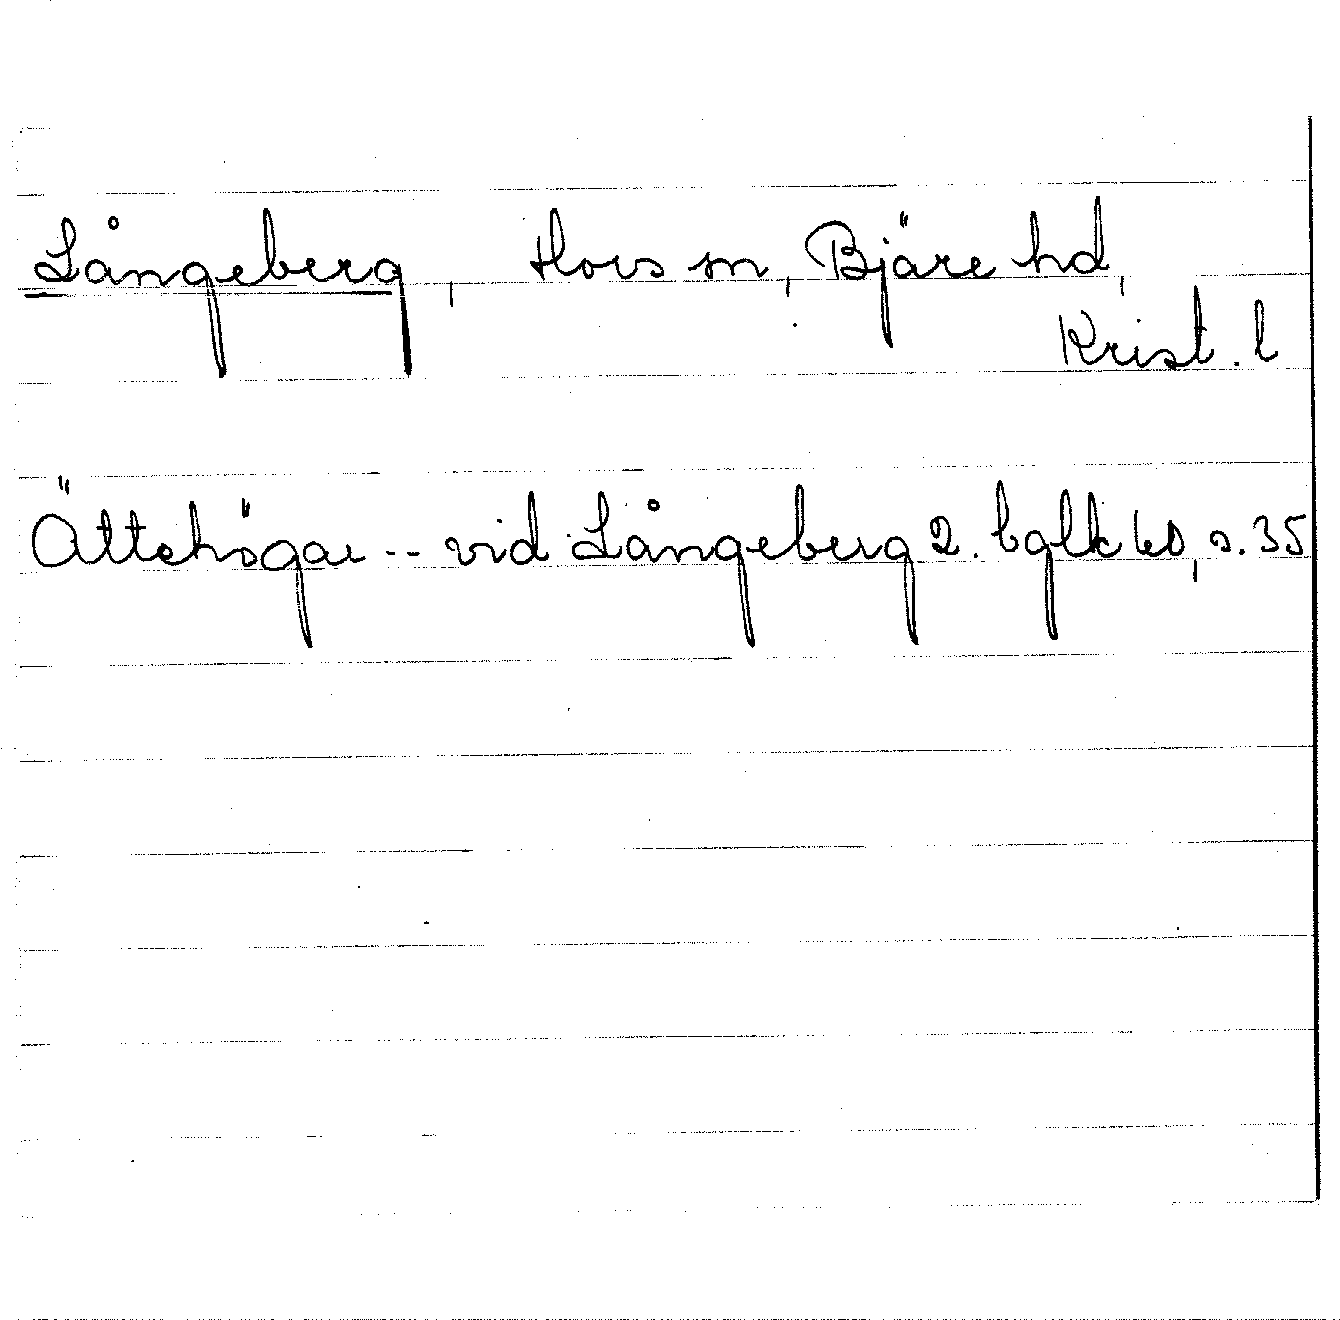 Långeberg, Hovs sn, Bjäre hd,
Krist. l
Ättehögar -- vid Långeberg 2. bglk bd, s. 35